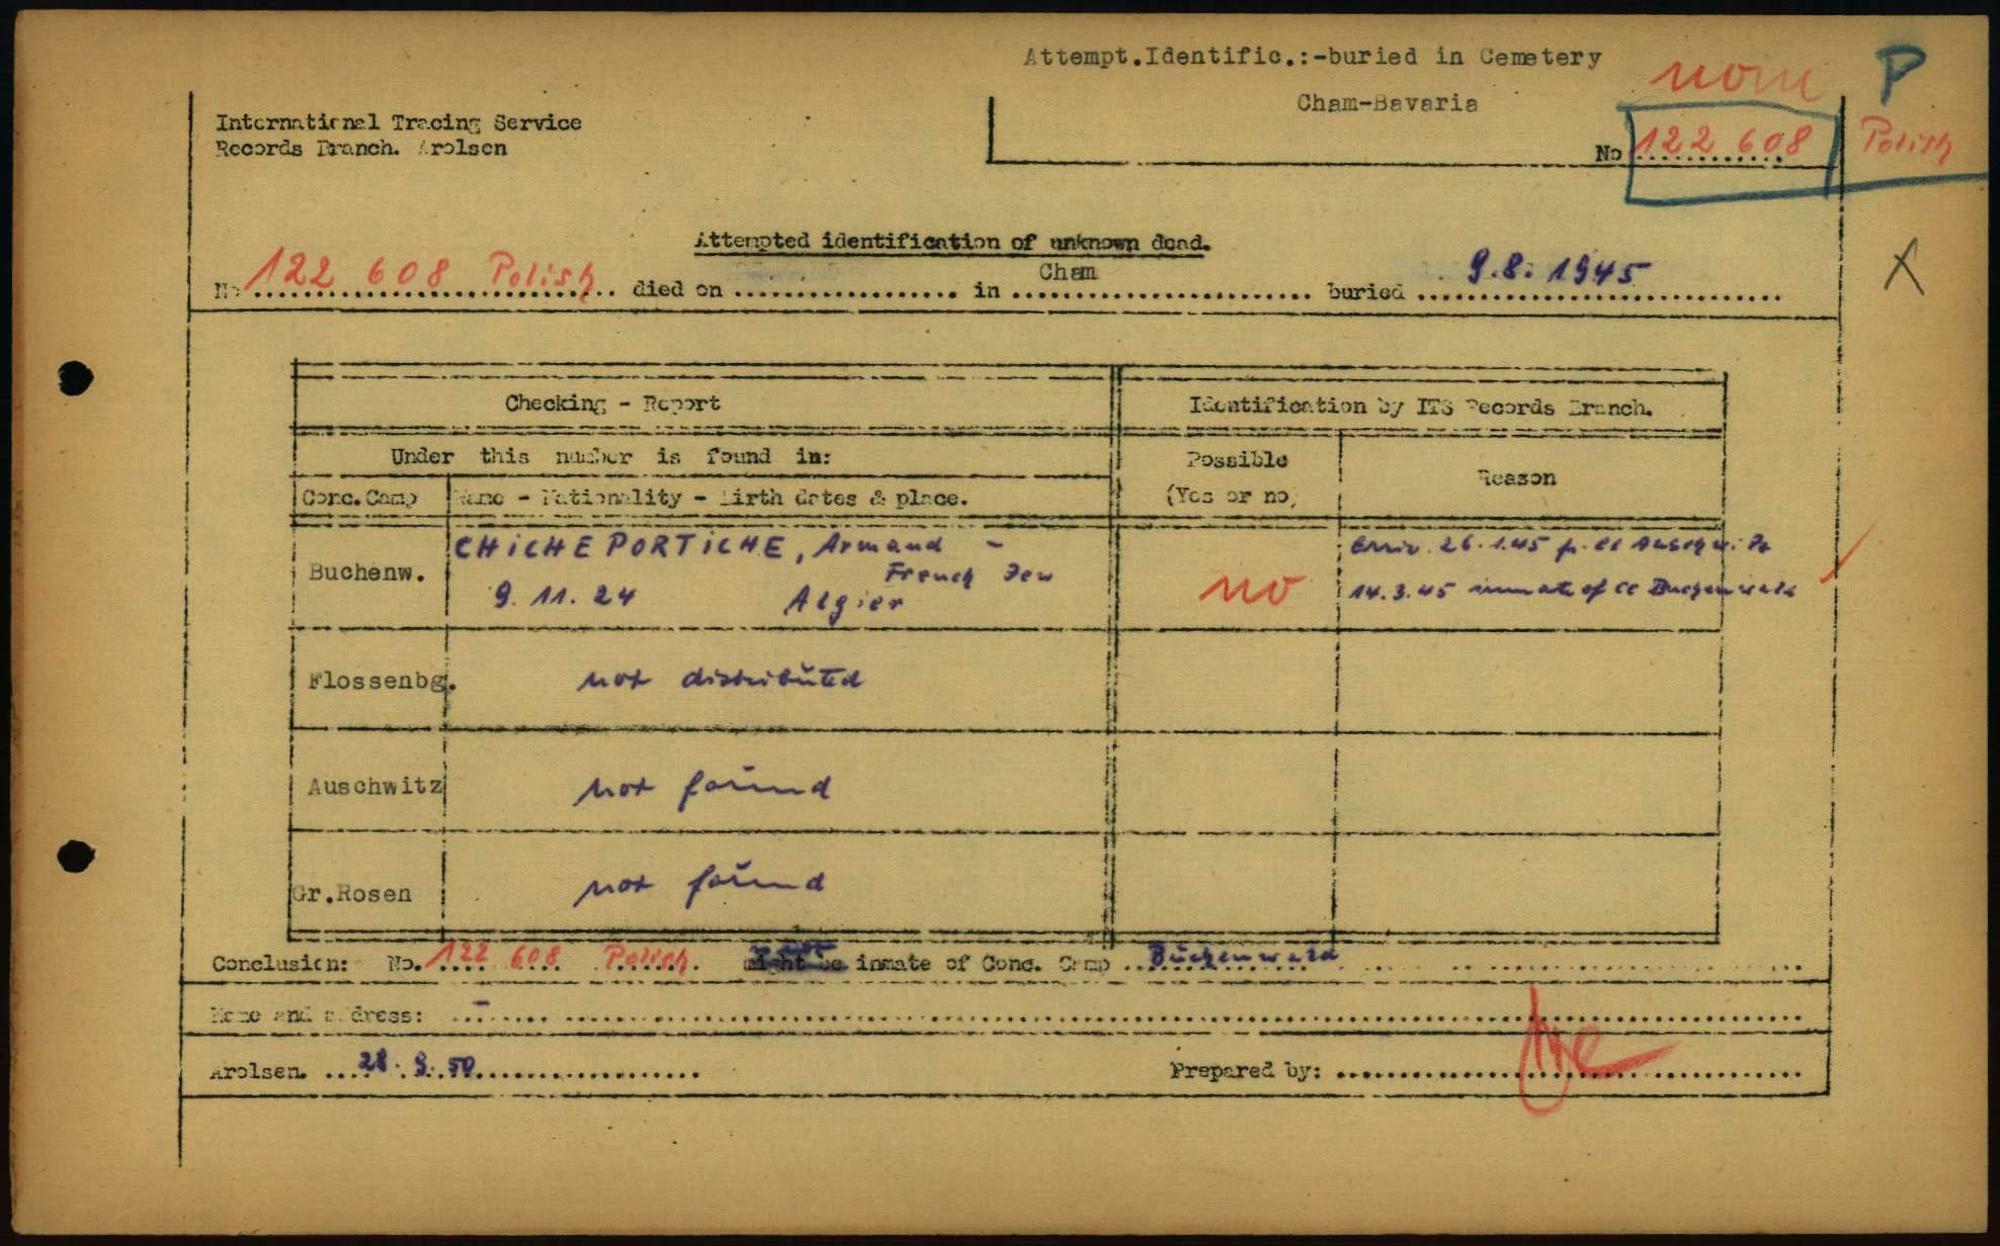 Attempt.Identific.:-buried in Cemetery
Cham-Bavaria
P
International Tracing Service
Records Branch. Arolsen
No 122 608
Polish
Attempted identification of unknown dead.
No 122 608 Polish died on .................. in Cham buried 9.8. 1945
X
Checking - Report
Identification by ITS Records Branch.
Under this number is found in:
Possible
(Yes or no)
Reason
Conc.Camp
Name - Nationality - Birth dates & place.
Buchenw.
CHICHEPORTICHE, Armand -
French Jew
9. 11. 24 Algier
no
26.1.45 Auschwitz
14.3.45 inmate of CC Buchenwald
Flossenbg.
not distributed
Auschwitz
not found
Gr.Rosen
not found
Conclusion: No. 122 608 Polish. inmate of Conc. Camp Buchenwald
Name and address: -
Arolsen. 28. 9. 50
Prepared by: